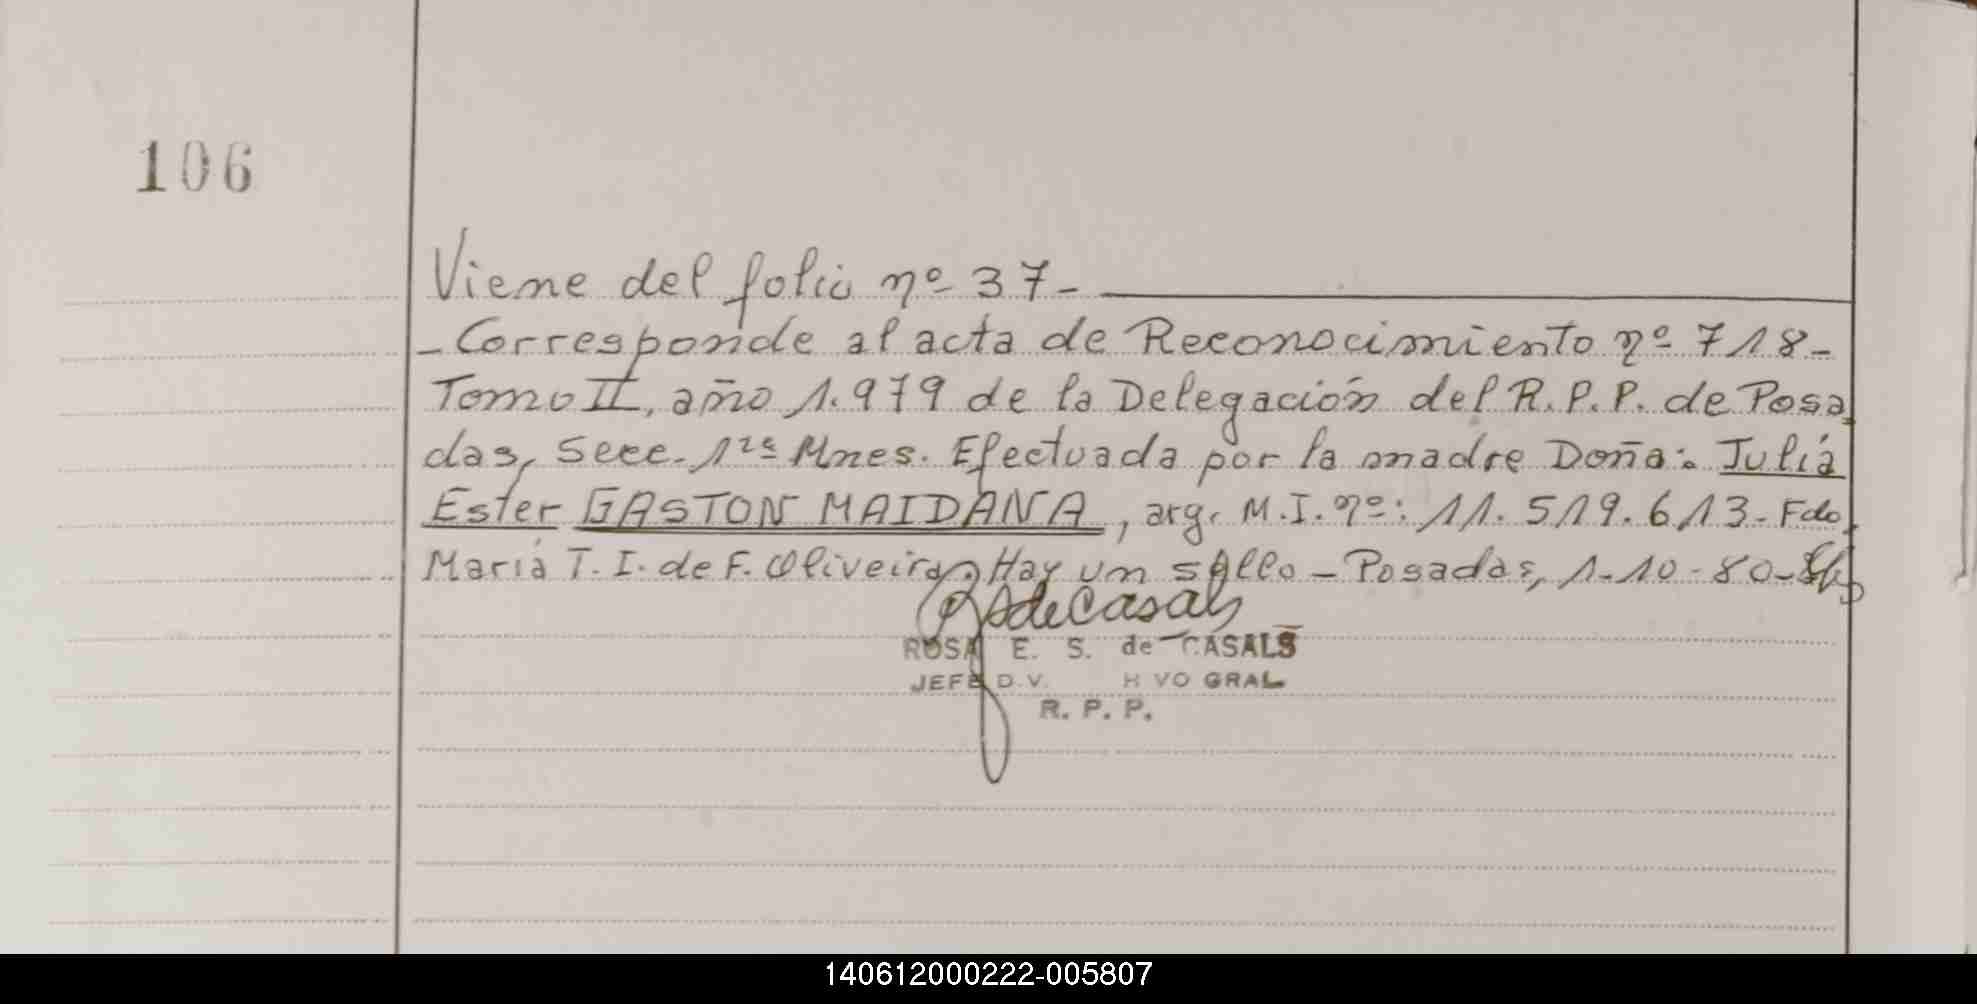 106
Viene del folio nº 37-
- Corresponde al acta de Reconocimiento nº 718-
Tomo II, año 1.979 de la Delegación del R.P.P. de Posa
das, Secc. 1ra Mnes. Efectuada por la madre Doña: Julia
Ester GASTON MAIDANA, arg. M.I. nº: 11.519.613- Fdo.
Maria T. I. de F. Oliveira, Hay un sello - Posadas, 1-10-80-
RSdeCasals
ROSA E. S. de CASALS
JEFE D V. H VO GRAL
R. P. P.
140612000222-005807